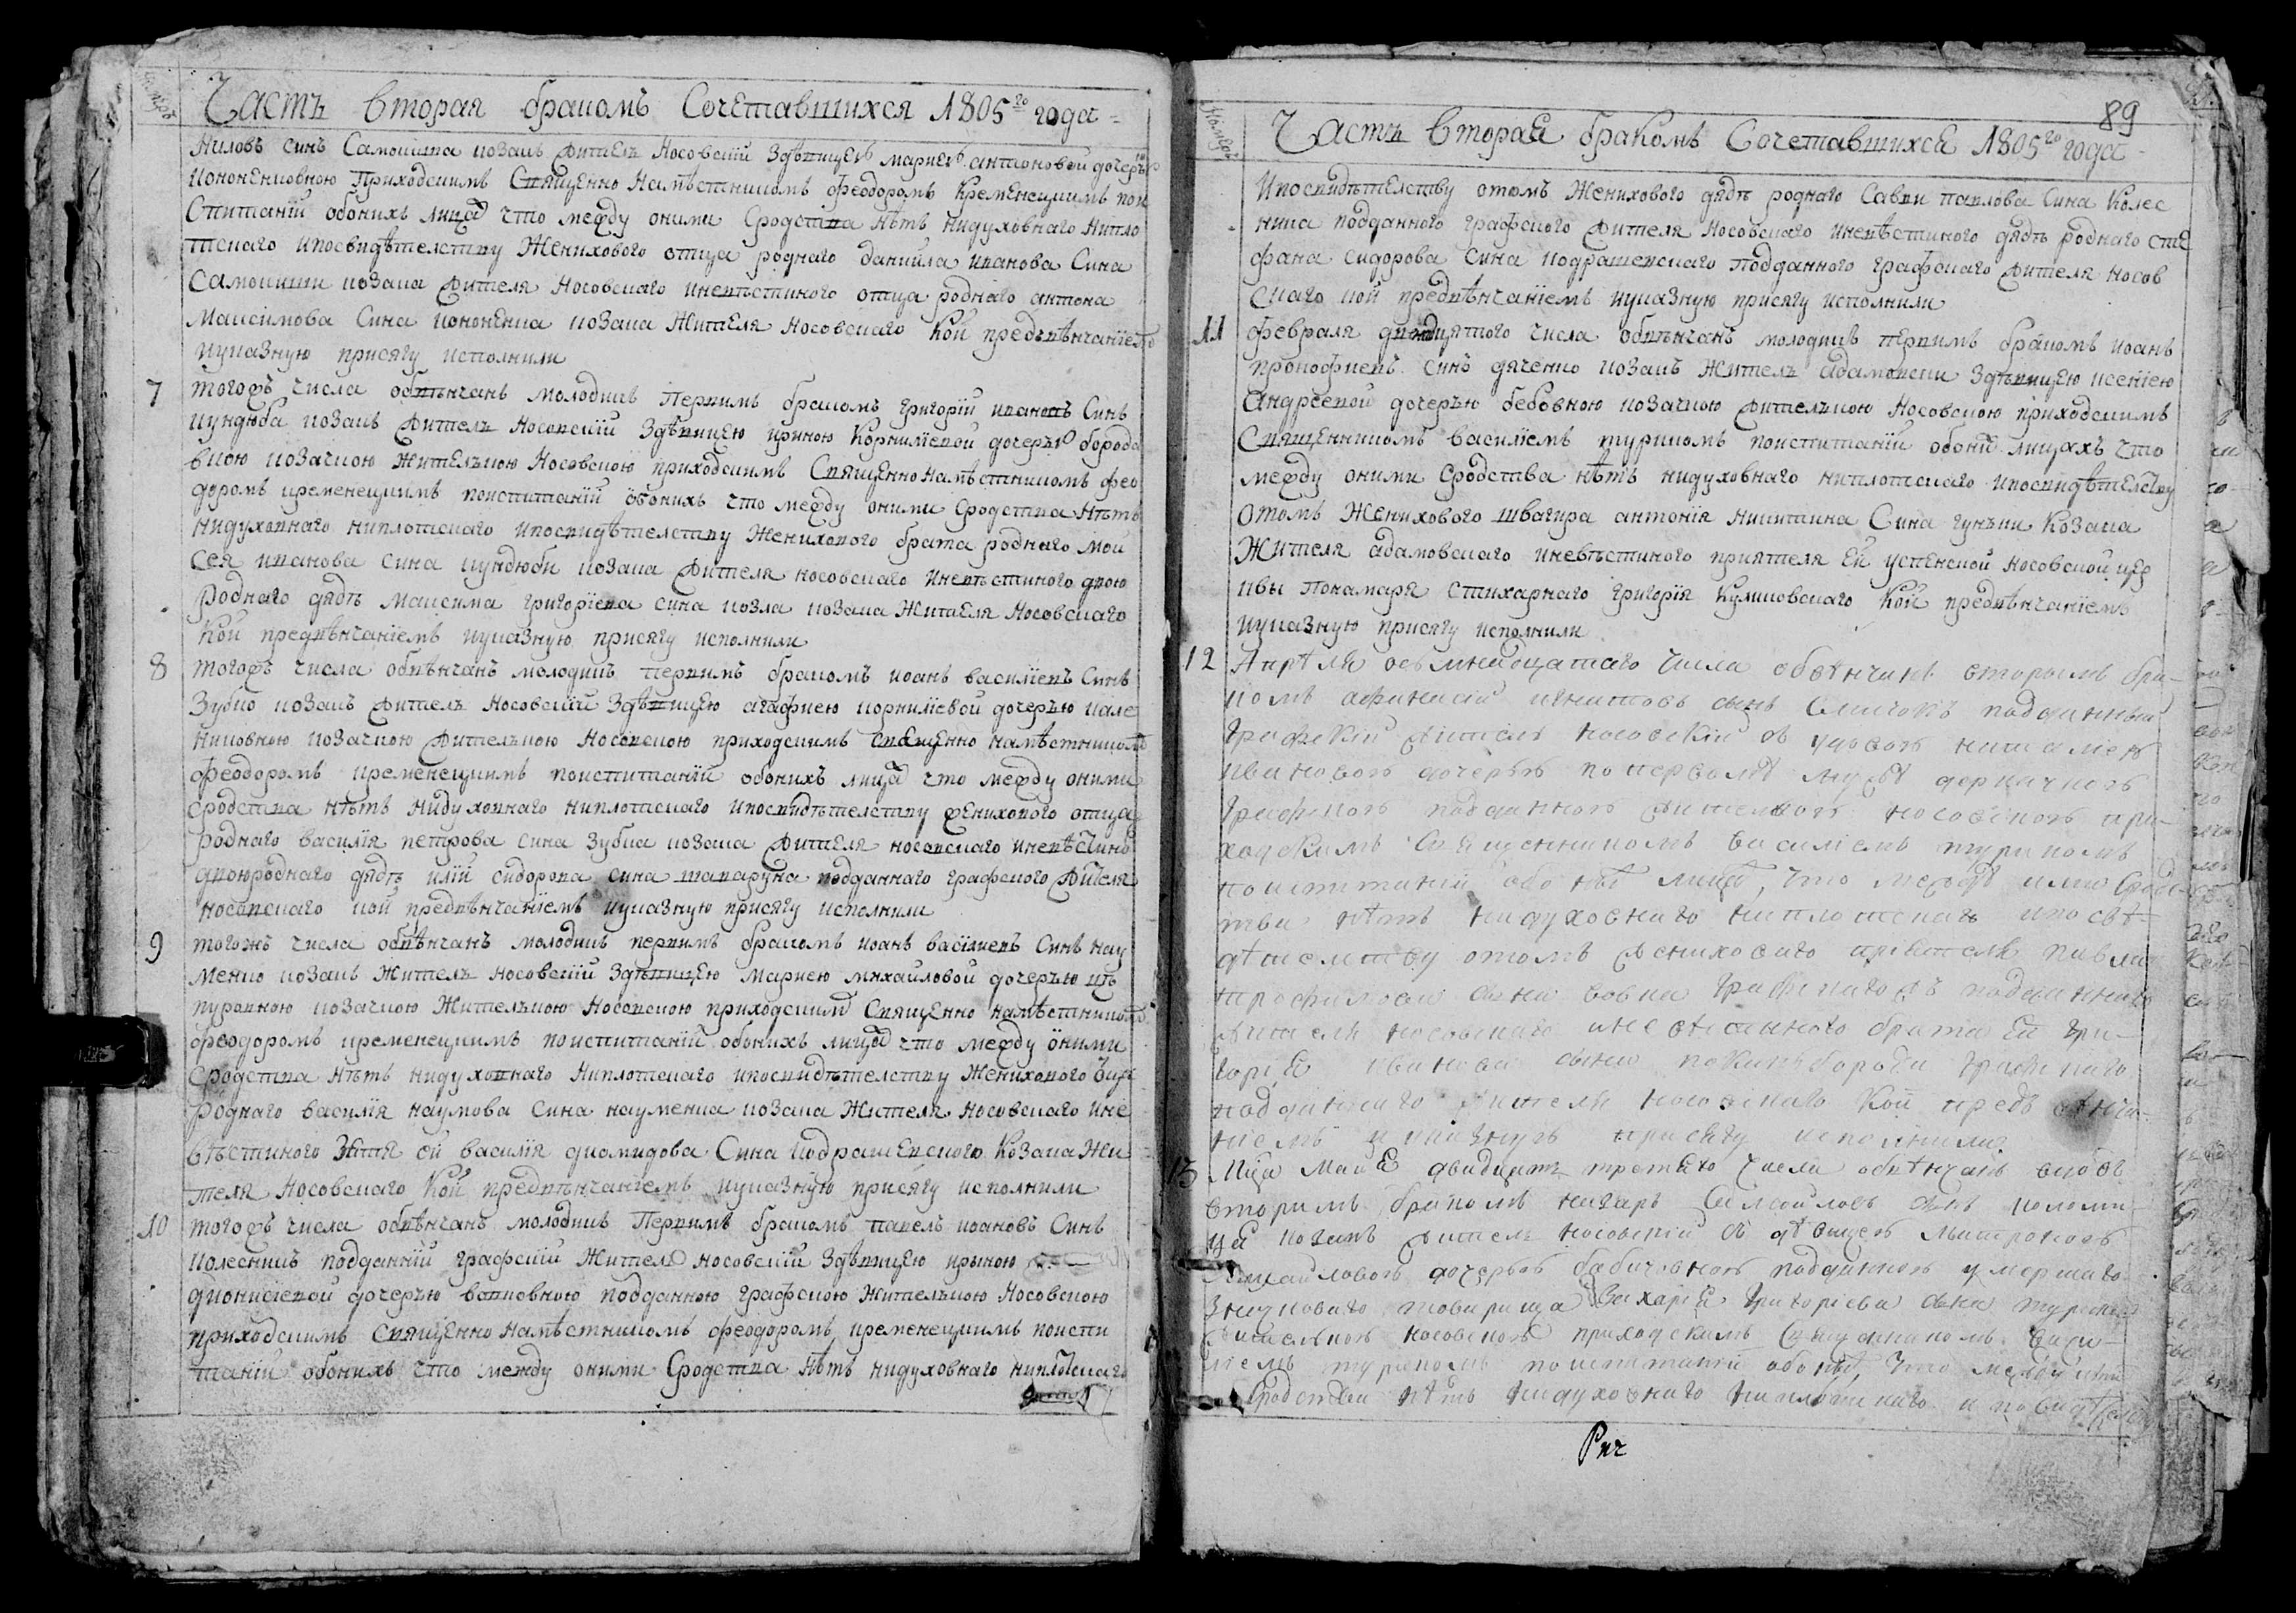 Часть вторая бракомъ Сочетавшихся 1805го года
ниловъ синъ Самошина козакъ житель Носовскій Здѣвицею мариею антоновой дочерью
кононенковною Приходскимъ Священно Намѣстникомъ феодоромъ Кременецкимъ пои
спитаніи обоихъ лицъ что между оними сродства нѣтъ нидуховнаго нипло
тскаго ипосвидѣтелству Женихового отца роднаго данійла иванова Сина
Самошини козака жителя Носовскаго иневѣстиного отца роднаго антона
Максимова Сина кононенка козака Жителя Носовскаго Кой предвѣнчаніемъ
иуказную присягу исполнили
7 тогожъ числа обвѣнчанъ молодикъ Первимъ бракомъ григорій ивановъ Синъ
кундюба козакъ житель Носовскій Здѣвицею ириною Корниліевой дочерью борода
вкою козачкою Жителькою Носовскою приходскимъ Священно Намѣстникомъ фео
доромъ кременецкимъ поиспитаній обоихъ что между оними сродства Нѣтъ
нидуховнаго ниплотскаго ипосвидѣтелству Женихового брата роднаго мои
сея иванова сина кундюби козака жителя носовскаго иневѣстиного двою
Роднаго дядѣ Максима григоріева сина козла козака Жителя Носовскаго
Кой предвѣнчаніемъ иуказную присягу исполнили
8 тогожъ числа обвѣнчанъ молодикъ первимъ бракомъ иоанъ василіевъ Синъ
Зубко козакъ житель Носовскій Здѣвицею агафиею корниліевой дочерью кале
никовною козачкою жителькою Носовскою приходскимъ священно намѣстникомъ
феодоромъ кременецкимъ поиспитаній обоихъ лицъ что между оними
сродства нѣтъ нидуховнаго ниплотскаго ипосвидѣтелству женихового отца
роднаго василія петрова сина Зубка козака жителя носовскаго иневѣстино
двоюроднаго дядѣ илій сидорова сина шапаруна подданнаго графского жителя
носовскаго кой предвѣнчаніемъ иуказную присягу исполнили
9 тогожъ числа обвѣнчанъ молодикъ первимъ бракомъ иоанъ василиевъ Синъ нау
менко козакъ Житель носовскій Здѣвицею Мариею михайловой дочерью
козачкою Жителькою Носовскою приходским Священно намѣстникомъ
феодоромъ кременецкимъ поиспитаній обоихъ лицъ что между оними
Сродства Нѣтъ нидуховнаго Ниплотскаго ипосвидѣтелству Женихового отца
Роднаго василія наумова Сина науменка козака Жителя Носовскаго ине
вѣстиного Зятя ей василія диомидова Сина кодрашевского Козака Жи
теля Носовскаго Кой предвѣнчаніемъ иуказную присягу исполнили
10 тогожъ числа обвѣнчанъ молодикъ Первимъ бракомъ павелъ иоановъ Синъ
колесникъ подданній графскій Житель носовскій Здѣвицею ириною
дионисіевой дочерью вовковною подданною графскою Жителькою Носовскою
приходскимъ Священно намѣстникомъ феодоромъ кременецкимъ поиспи
таніи обоихъ что между оними Сродства Нѣтъ нидуховнаго ниплотскаго
89
Часть Вторая бракомъ Сочетавшихся 1805го года
Ипосвидѣтелству отомъ Женихового дядѣ роднаго Савви павлова Сина Колес
ника подданного графского жителя Носовскаго иневѣстиного дядѣ роднаго сте
фана сидорова сина кодрашевскаго подданного графскаго жителя носов
скаго кой предвѣнчаніемъ иуказную присягу исполнили
11 февраля числа обвѣнчанъ молодикъ первимъ бракомъ иоанъ
прокофиевъ синъ дяченко козакъ Житель адамовски Здѣвицею ксеніею
андреевой дочерью бебовною козачкою жителькою Носовскою приходскимъ
Священникомъ василіемъ турцкомъ поиспитаній обоий лицахъ что
между оними Сродства нѣтъ нидуховнаго ниплотскаго ипосвидѣтелству
отомъ Женихового швагира антонія никитина Сина гункы Козака
Жителя адамовскаго иневѣстиного приятеля ей успенской носовской цер
кви понамаря стихарнаго григорія Куликовскаго Кой предвѣнчаніемъ
иуказную присягу исполнили
12 Апрѣля осьмнадцатаго числа обвѣнчанъ вторымъ бра
комъ афанасій игнатовъ сынъ подданный
Графскій житель носовскій съ удовою наталіею
ивановою дочерью поперволу мужу деркачкою
Графскою подданною жителкою носовскою при
ходскимъ Священникомъ василіемъ турцкомъ
поиспитаній обоихъ лицъ, что между ими Сродс
тва нѣтъ нидуховнаго ниплотскаго ипосвѣ
дѣтелству отомъ жениховаго приятеля павла
трофимова сына вовка Графскаго подданнаго
жителя носовскаго иневѣстинного брата ей гри
горіе иванова сына покиньбороди графскаго
подданнаго жителя носовскаго Кой предъ вѣнча
ніемъ иуказную присягу исполнили
13 Мца Маие двадцать третьего числа обвѣнчанъ вдовъ
вторимъ бракомъ назаръ Самойловъ сынъ коломи
козакъ житель носовскій съ дѣвицею
Михайловою дочерью бабичевною подданною умершаго
значковаго товарища Захаріе Григоріева сына
жителькою носовскою приходскимъ Священникомъ васи
ліемъ турцкомъ поиспитаній обоихъ, что между ими
Сродства нѣтъ нидуховнаго ниплотскаго